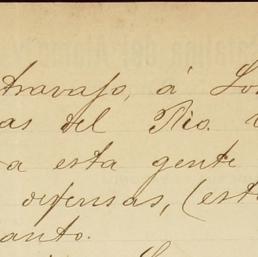 travajo, á Lo
as del Rio.
a esta gente
defensas, (est
anto.